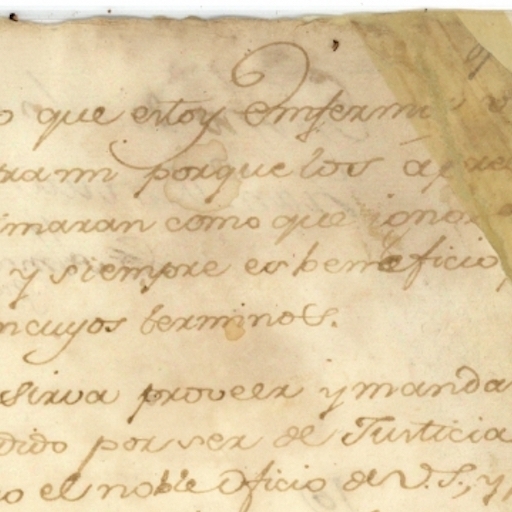 o que estoy enfermo
para mi porque los apre
imaran como que ignor
y siempre es beneficio
ncuyos terminos.
sirva proveer y manda
dido por ser de Justicia
o el noble Oficio de V.S., y